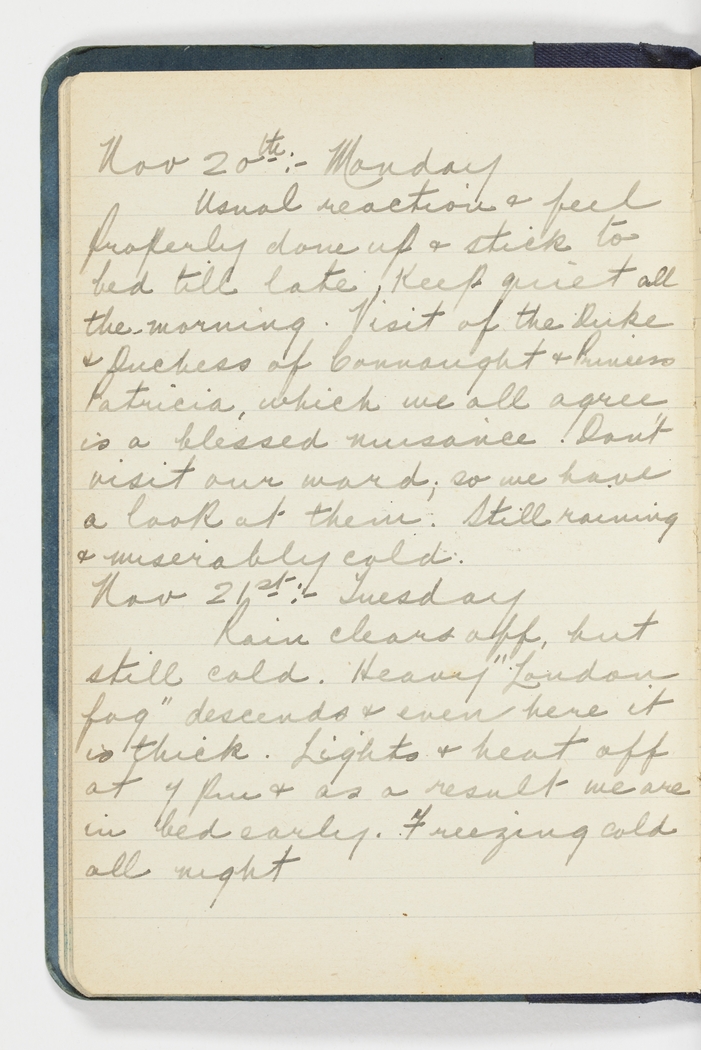 Nov 20th:- Monday
Usual reaction & feel
properly done up & stick to
bed till late, Keep quiet all
the morning. Visit of the Duke
& Duchess of Connaught & Princess
Patricia, which we all agree
is a blessed nuisance. Don't
visit our ward; so we have
a look at them. Still raining
& miserably cold.
Nov 21st:- Tuesday
Rain clears off, but
still cold. Heavy "London
fog" descends & even here it
is thick. Lights & heat off
at 7 pm & as a result we are
in bed early. Freezing cold
all night